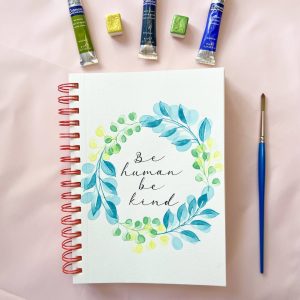 Be
human
be
kind